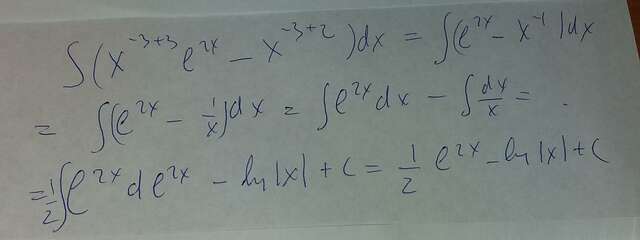 ∫(x^{-3+3} e^{2x} - x^{-3+2})dx = ∫(e^{2x} - x^{-1})dx
= ∫(e^{2x} - 1/x)dx = ∫e^{2x}dx - ∫dx/x =
= 1/2 ∫e^{2x} de^{2x} - ln|x| + C = 1/2 e^{2x} - ln|x| + C